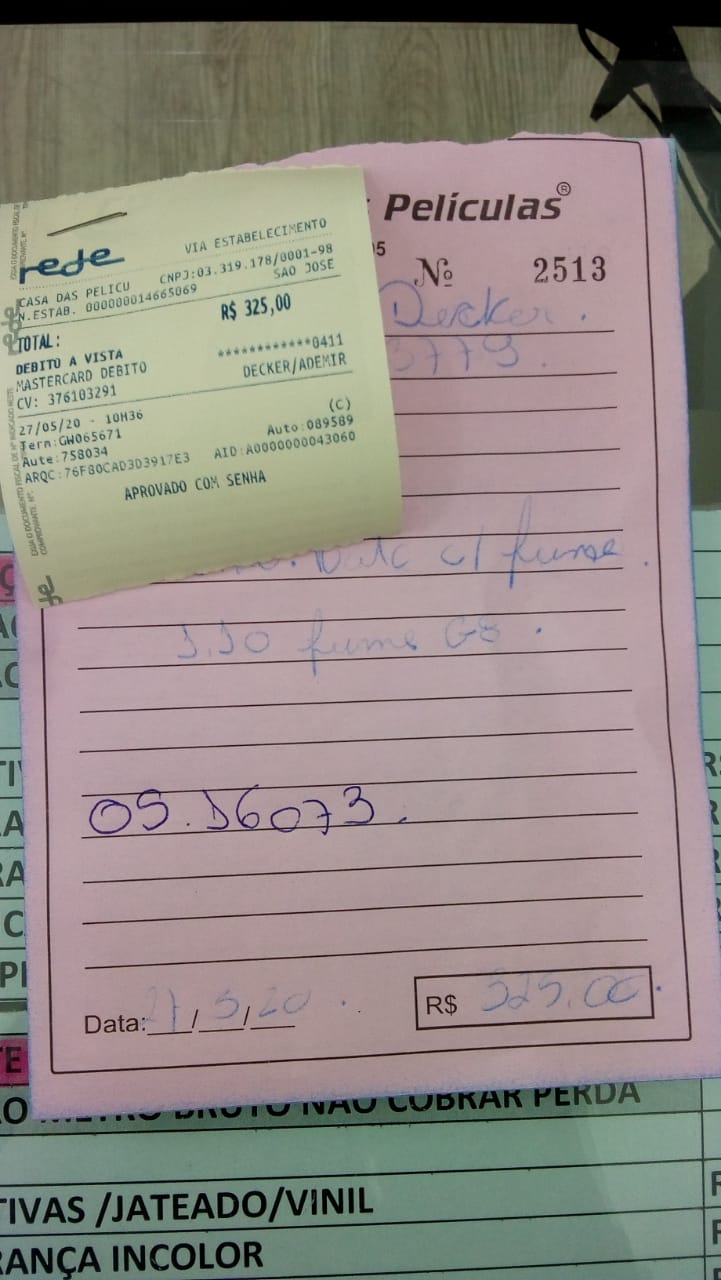 rede
VIA ESTABELECIMENTO
CASA DAS PELICU CNPJ:03.319.178/0001-98
N.ESTAB. 000000014665069 SAO JOSE
TOTAL: R$ 325,00
DEBITO A VISTA
MASTERCARD DEBITO ************0411
CV: 376103291 DECKER/ADEMIR
27/05/20 - 10H36 (C)
Term:GW065671 Auto:089589
Aute:758034
ARQC:76F80CAD3D3917E3 AID:A0000000043060
APROVADO COM SENHA
Películas®
Nº 2513
Decker.
3779.
c/ fume.
fume G5.
OS.16073.
Data: 27/5/20.
R$ 325,00.
O METRO BRUTO NÃO COBRAR PERDA
TIVAS /JATEADO/VINIL
RANÇA INCOLOR